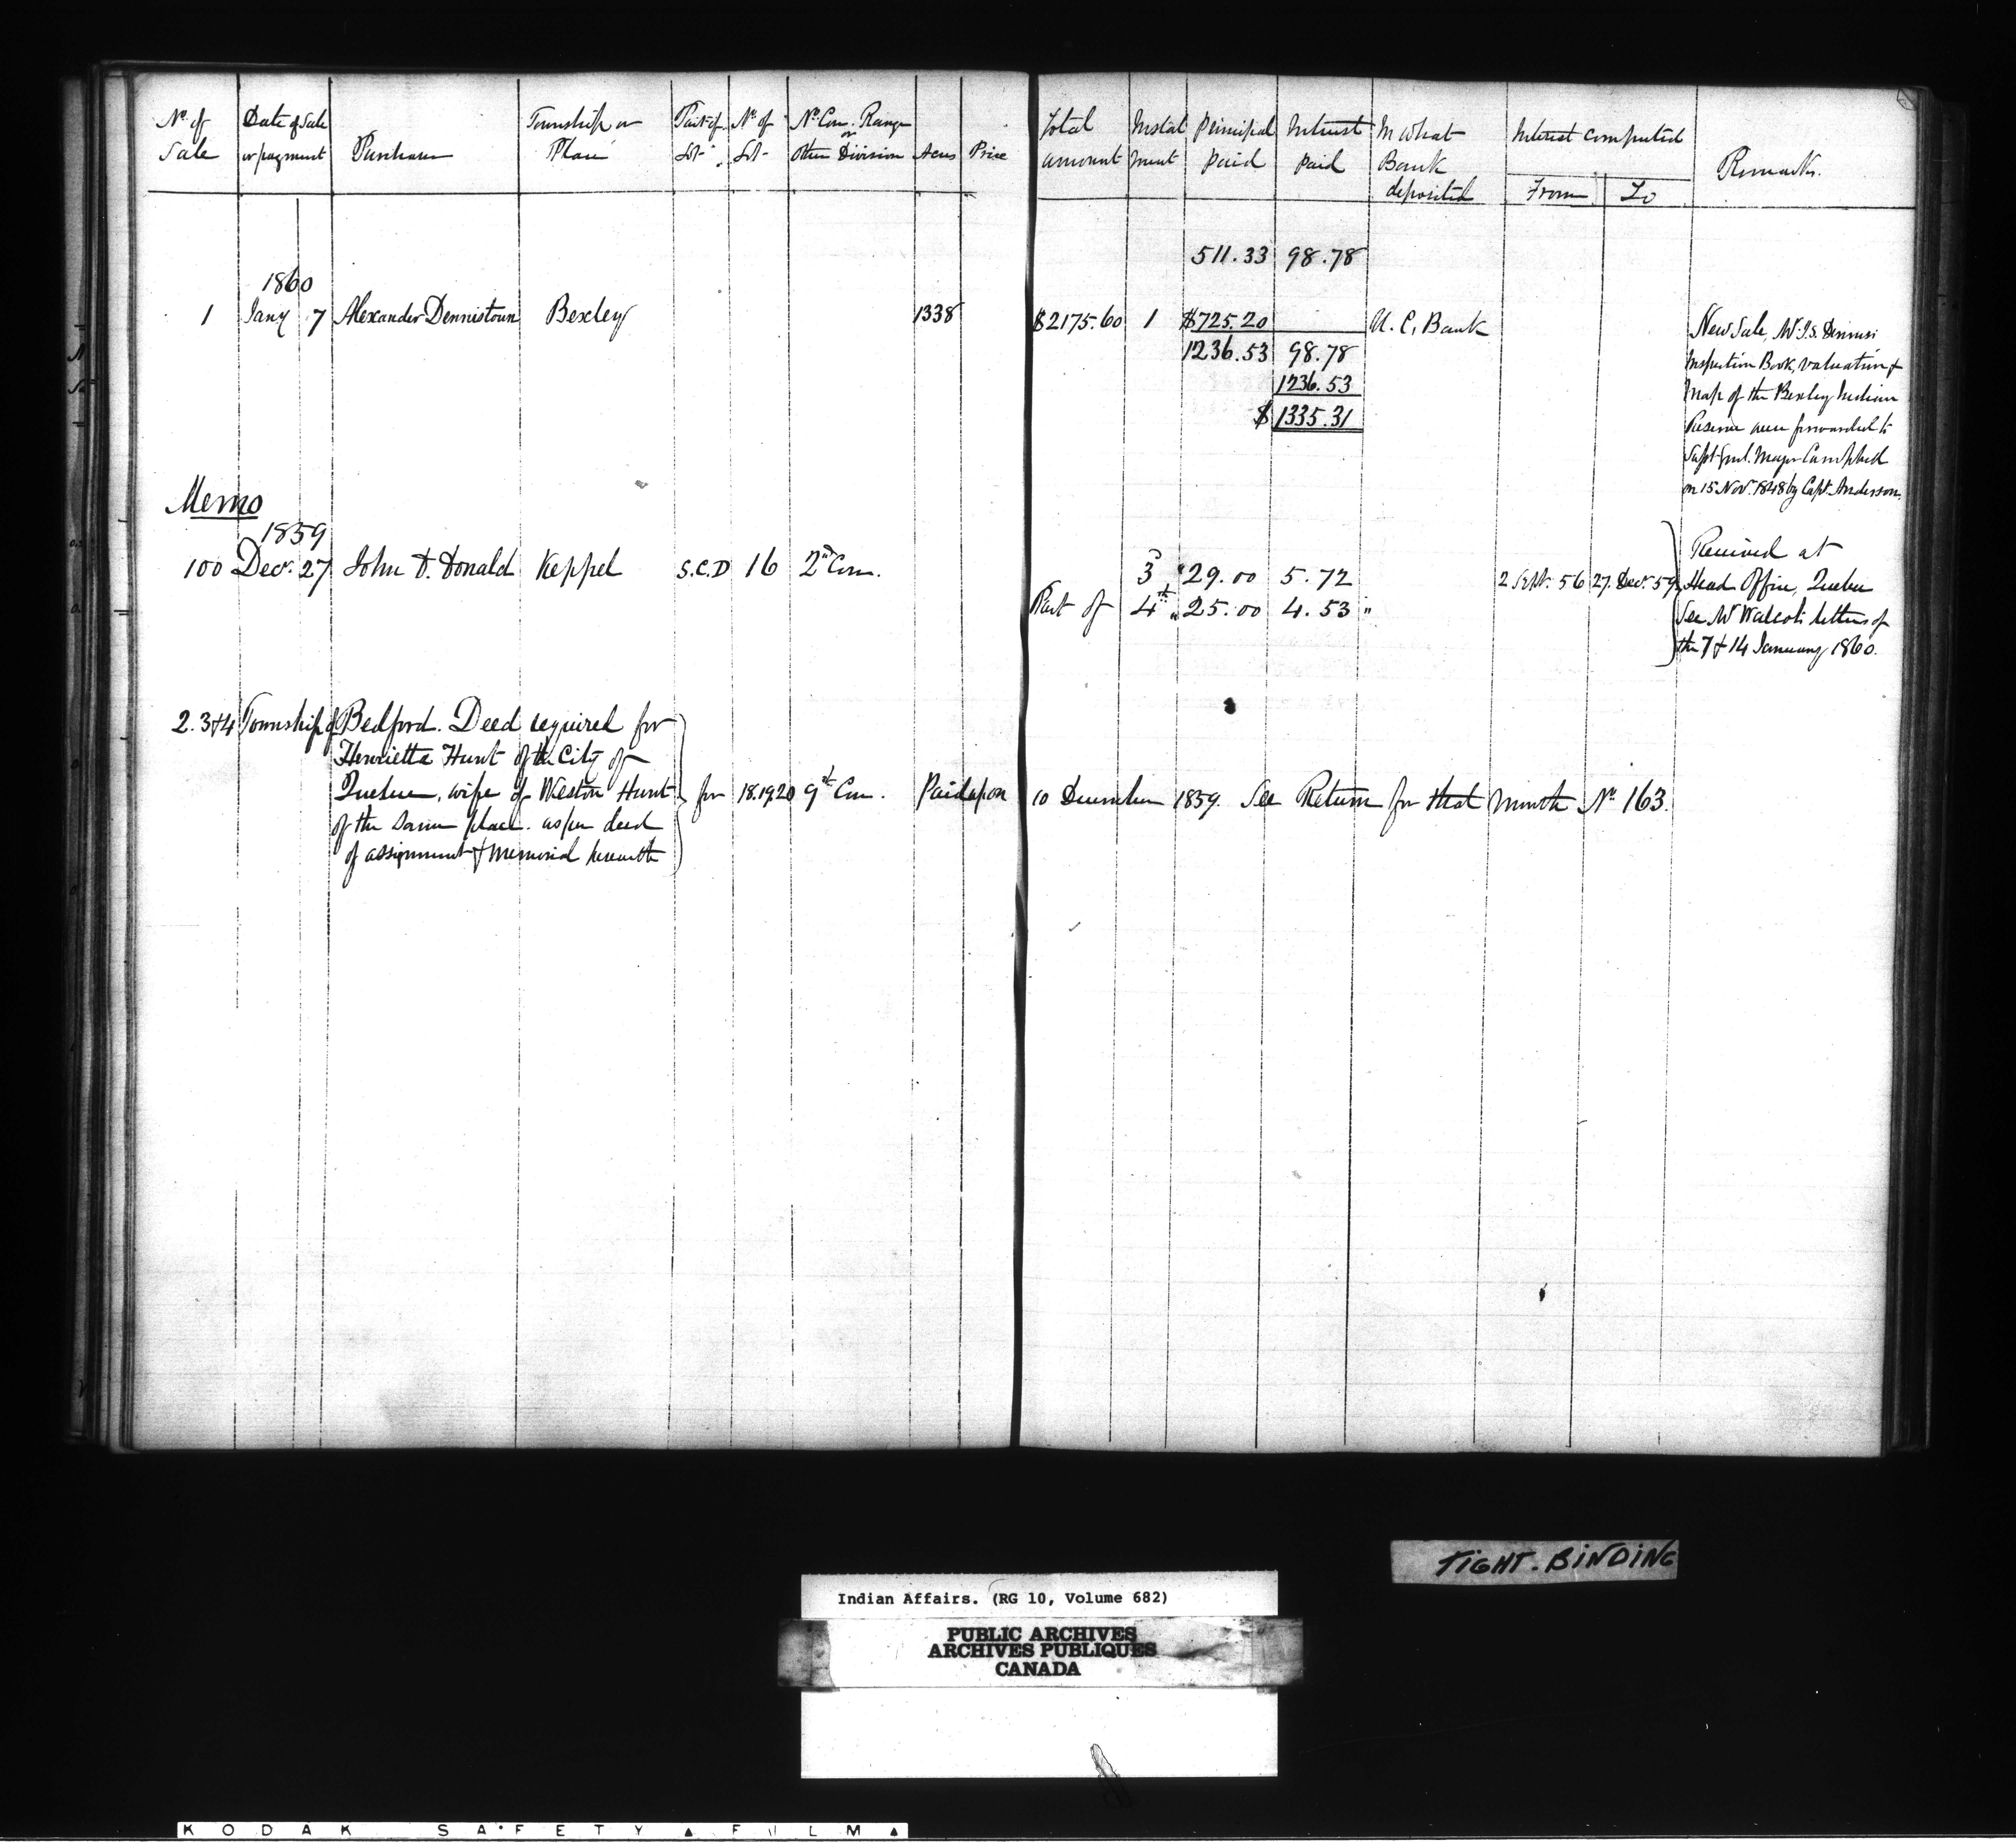 No. of Sale | Date of Sale or payment | Purchaser | Township or Place | Part of Lot | No. of Lot | No. Con. Range or Other Division | Acres | Price | Total amount | Instalment | Principal paid | Interest paid | In what Bank deposited | Interest computed From | To | Remarks.
511.33 98.78
1860
1 Jany 7 Alexander Dennistoun Bexley 1338 $2175.60 1 $725.20 U. C. Bank
1236.53 98.78
1236.53
$ 1335.31
New Sale, Mr J.S. Dennis'
Inspection Book, valuation &
Map of the Bexley Indian
Reserve were forwarded to
Supt Genl. Major Campbell
on 15 Nov. 1848 by Capt. Anderson.
Memo
1859
100 Decr. 27 John D. Donald Keppel S.C.D 16 2nd Con. 3 " 29.00 5.72 2 Sept. 56 27. Decr. 59
Part of 4th " 25.00 4.53 "
Received at
Head Office, Quebec
See Mr Walcot's letters of
the 7 & 14 January 1860.
2. 3 & 4 Township of Bedford. Deed required for
Henrietta Hunt of the City of
Quebec, wife of Weston Hunt
of the same place. as per deed
of assignment & memorial herewith
for 18.19.20 9th Con. Paid upon 10 December 1859. See Return for that month No. 163.
TIGHT. BINDING
Indian Affairs. (RG 10, Volume 682)
PUBLIC ARCHIVES
ARCHIVES PUBLIQUES
CANADA
KODAK SAFETY FILM